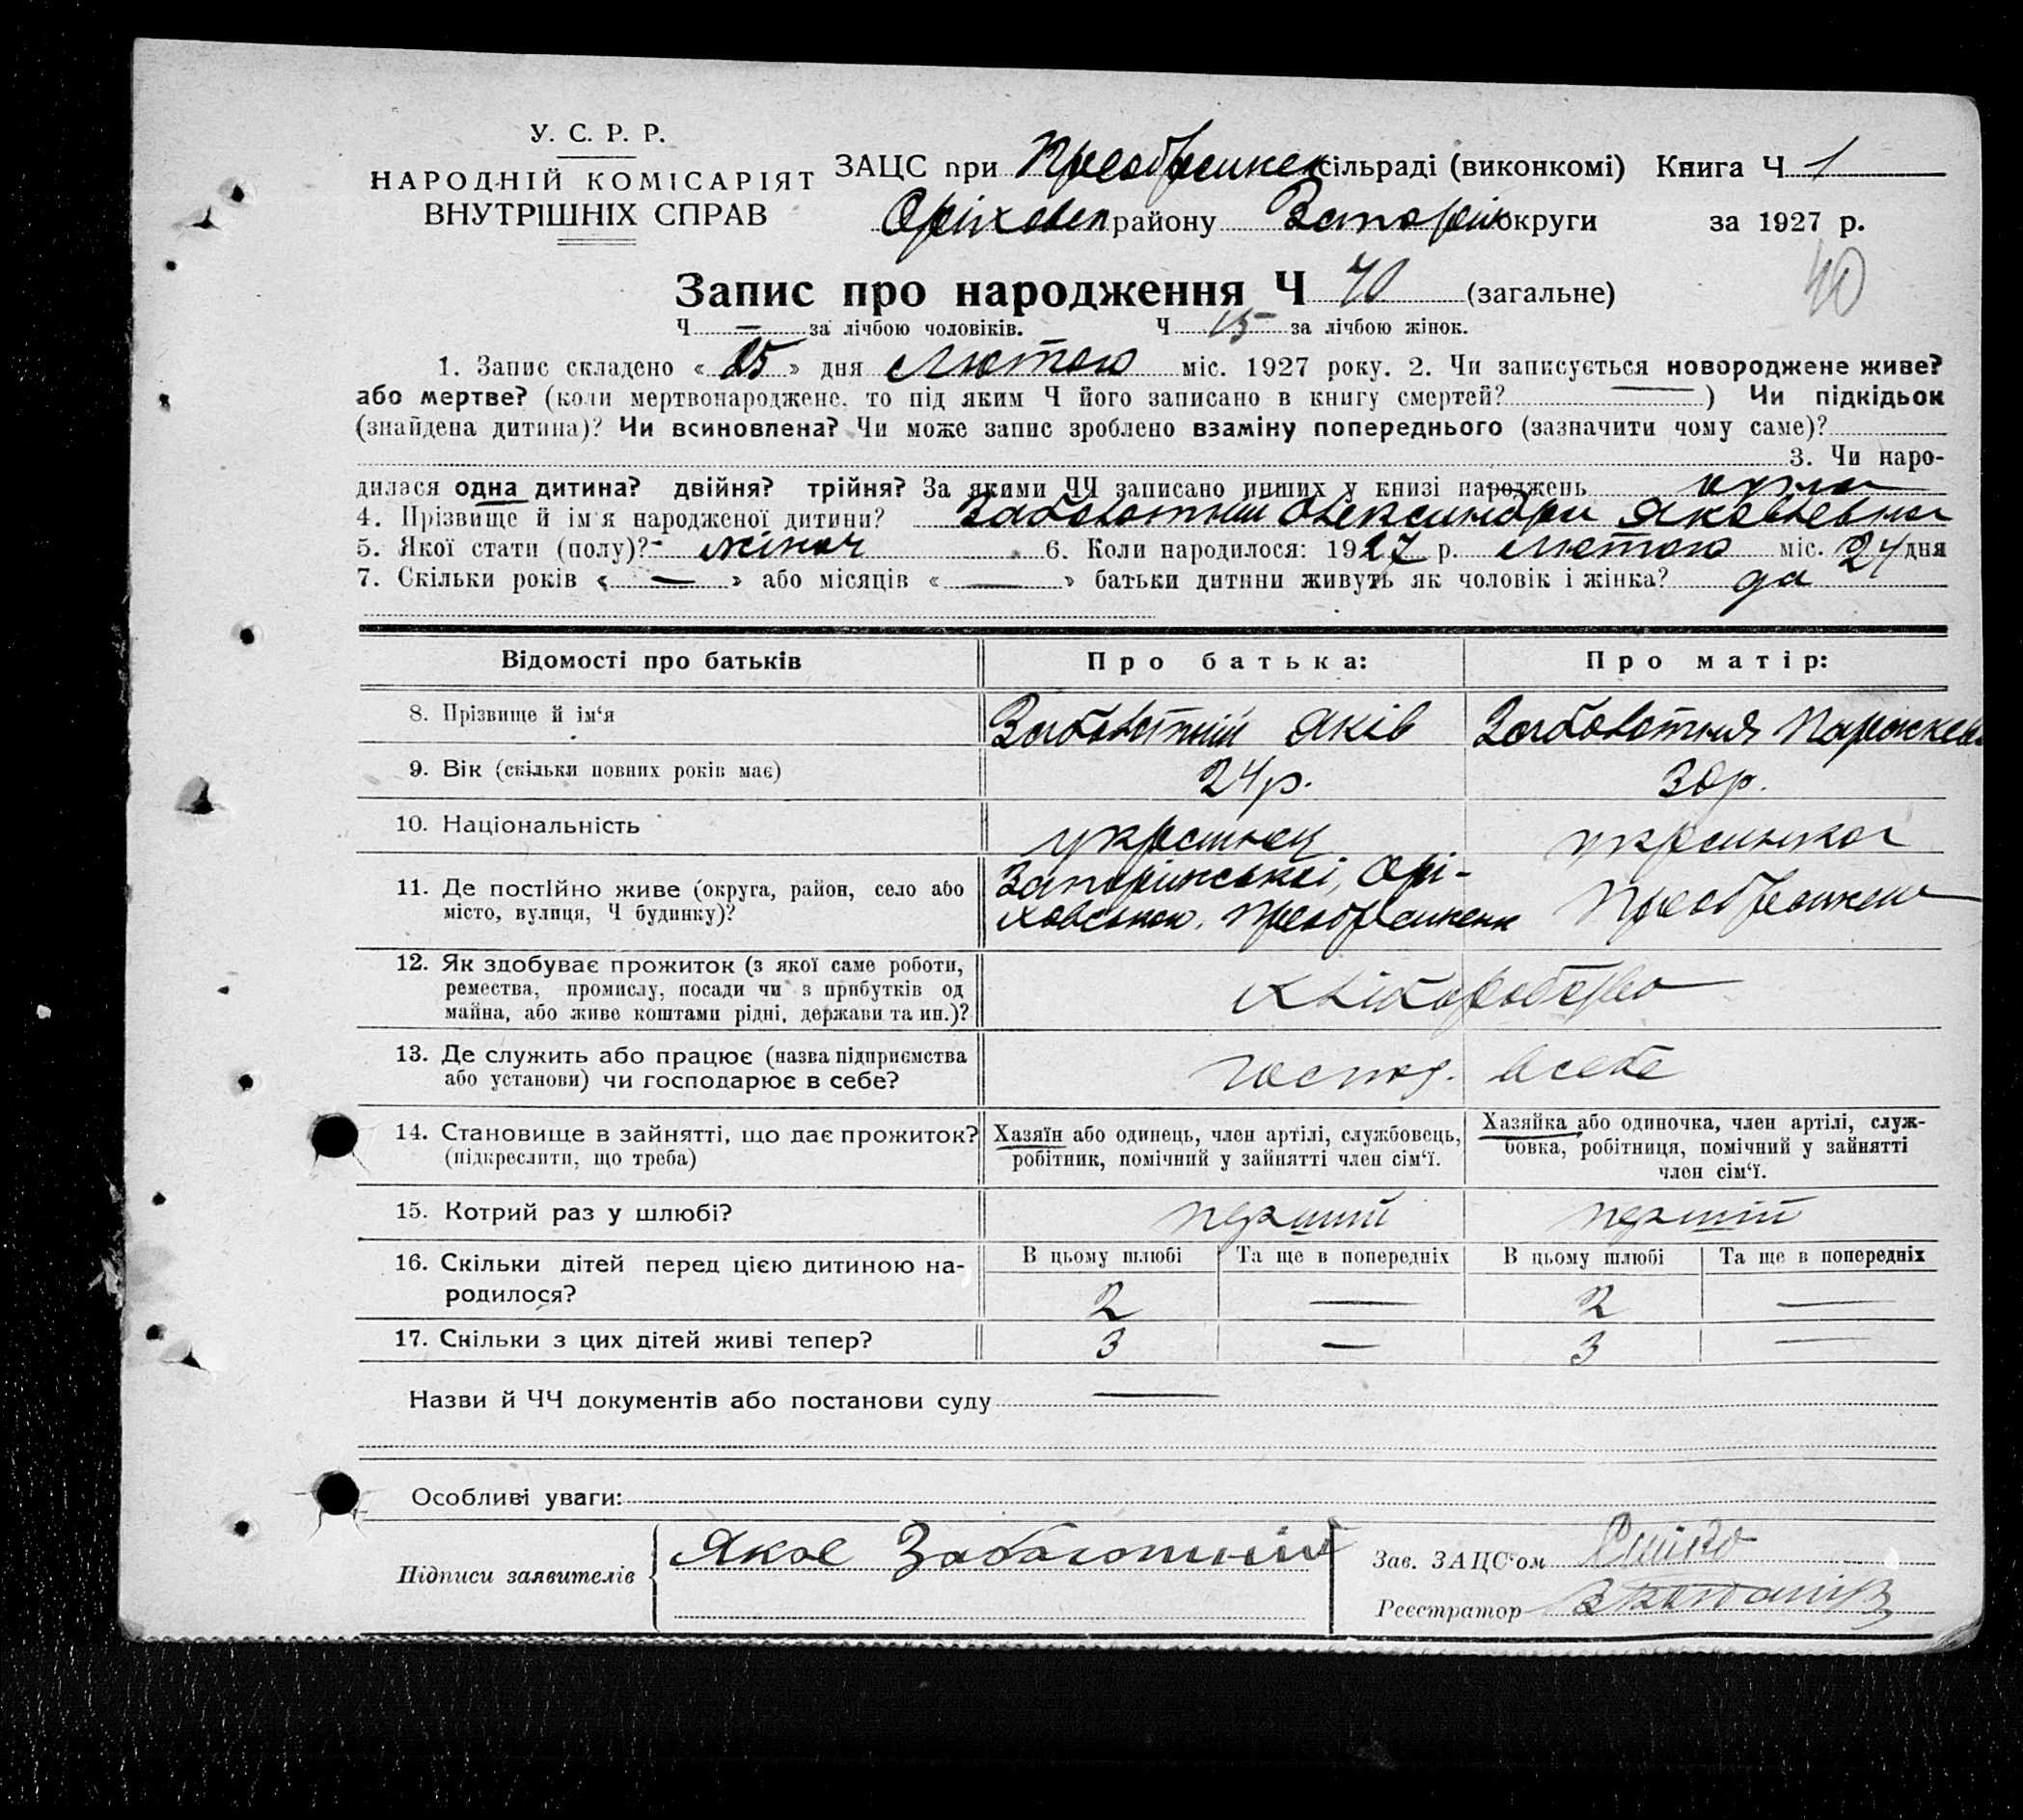 У. С. Р. Р.
НАРОДНІЙ КОМІСАРІЯТ
ВНУТРІШНІХ СПРАВ
ЗАЦС при Преображен сільраді (виконкомі) Книга Ч 1
Оріховськ району Запоріж округи за 1927 р.
40
Запис про народження Ч 40 (загальне)
Ч — за лічбою чоловіків. Ч 15 за лічбою жінок.
1. Запис складено « 25 » дня Лютого міс. 1927 року. 2. Чи записується новороджене живе?
або мертве? (коли мертвонароджене, то під яким Ч його записано в книгу смертей? —) Чи підкідьок
(знайдена дитина)? Чи всиновлена? Чи може запис зроблено взаміну попереднього (зазначити чому саме)?
3. Чи наро-
дилася одна дитина? двійня? трійня? За якими ЧЧ записано инших у книзі народжень одна
4. Прізвище й ім'я народженої дитини? Заболотній Олександра Яковлевна
5. Якої стати (полу)? жіноч 6. Коли народилося: 1927 р. Лютого міс. 24 дня
7. Скільки років « — » або місяців « — » батьки дитини живуть як чоловік і жінка? да
Відомості про батьків Про батька: Про матір:
8. Прізвище й ім'я Заболотній Яків Заболотня Параскева
9. Вік (скільки повних років має) 24р. 30р.
10. Національність украинец украинка
11. Де постійно живе (округа, район, село або
місто, вулиця, Ч будинку)?
Запоріжської, Орі-
ховською. Преображенк Преображен
12. Як здобуває прожиток (з якої саме роботи,
ремества, промислу, посади чи з прибутків од
майна, або живе коштами рідні, держави та ин.)?
хліборобство
13. Де служить або працює (назва підприємства
або установи) чи господарює в себе?
господ. в себе
14. Становище в зайнятті, що дає прожиток?
(підкреслити, що треба)
Хазяїн або одинець, член артілі, службовець,
робітник, помічний у зайнятті член сім'ї.
Хазяйка або одиночка, член артілі, служ-
бовка, робітниця, помічний у зайнятті
член сім'ї.
15. Котрий раз у шлюбі? перший перший
16. Скільки дітей перед цією дитиною на-
родилося?
В цьому шлюбі Та ще в попередніх В цьому шлюбі Та ще в попередніх
2 — 2 —
17. Скільки з цих дітей живі тепер? 3 — 3 —
Назви й ЧЧ документів або постанови суду —
Особливі уваги:
Підписи заявителів Яков Заболотний
Зав. ЗАЦС'ом
Реєстратор